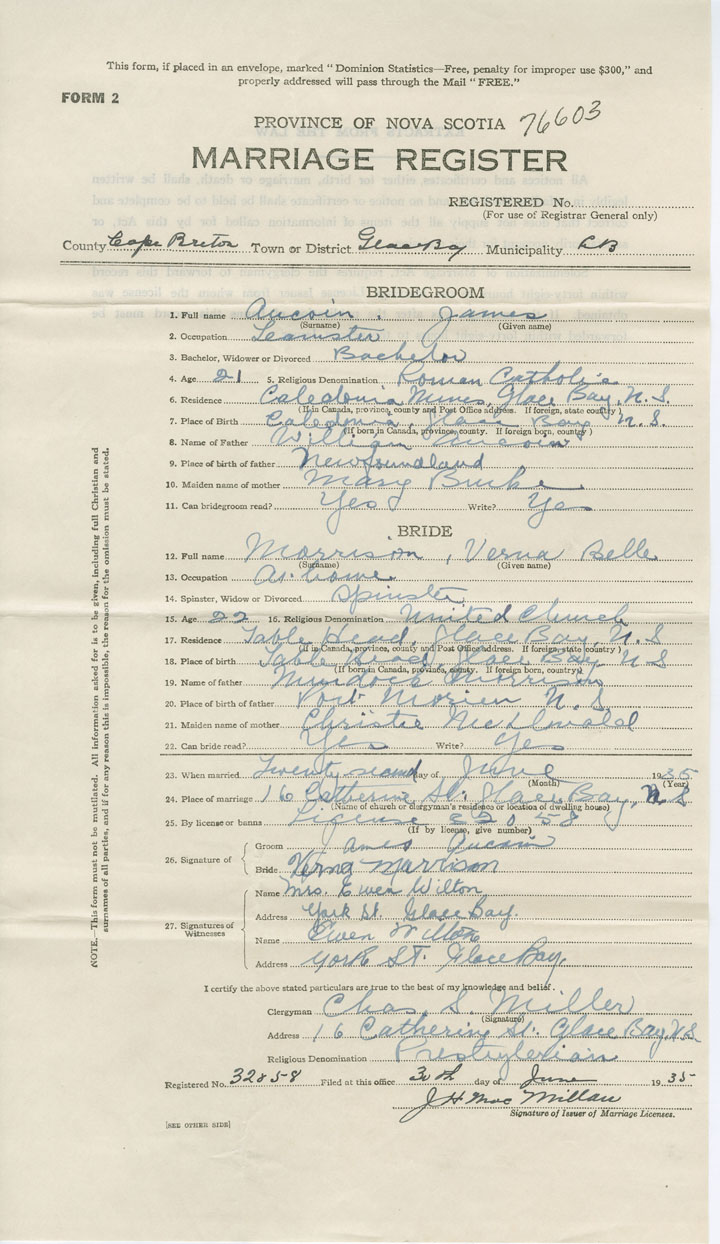 This form, if placed in an envelope, marked "Dominion Statistics—Free, penalty for improper use $300," and
properly addressed will pass through the Mail "FREE."
FORM 2
PROVINCE OF NOVA SCOTIA 76603
MARRIAGE REGISTER
REGISTERED No.
(For use of Registrar General only)
County Cape Breton Town or District Glace Bay Municipality CB
BRIDEGROOM
1. Full name Aucoin, James
(Surname) (Given name)
2. Occupation Teamster
3. Bachelor, Widower or Divorced Bachelor
4. Age 21 5. Religious Denomination Roman Catholic
6. Residence Caledonia Mines, Glace Bay, N.S.
(If in Canada, province, county and Post Office address. If foreign, state country)
7. Place of Birth Caledonia, Glace Bay N.S.
(If born in Canada, province, county. If foreign born, country)
8. Name of Father William Aucoin
9. Place of birth of father Newfoundland
10. Maiden name of mother Mary Burke
11. Can bridegroom read? Yes Write? Yes
BRIDE
12. Full name Morrison, Verna Belle
(Surname) (Given name)
13. Occupation At home
14. Spinster, Widow or Divorced Spinster
15. Age 22 16. Religious Denomination United Church
17. Residence Table Head, Glace Bay, N.S
(If in Canada, province, county and Post Office address. If foreign, state country)
18. Place of birth Table Head, Glace Bay, N S
(If born in Canada, province, county. If foreign born, country)
19. Name of father Murdock Morrison
20. Place of birth of father Port Morien N.S
21. Maiden name of mother Christie McDonald
22. Can bride read? Yes Write? Yes
23. When married Twenty second day of June 1935
(Month) (Year)
24. Place of marriage 16 Catherine St. Glace Bay, N.S
(Name of church or clergyman's residence or location of dwelling house)
25. By license or banns License
(If by license, give number)
26. Signature of Groom James Aucoin
Bride Verna Morrison
27. Signatures of Witnesses
Name Mrs. Ewen Wilton
Address York St. Glace Bay.
Name Ewen Wilton
Address York St. Glace Bay.
I certify the above stated particulars are true to the best of my knowledge and belief.
Clergyman Chas. S. Miller
(Signature)
Address 16 Catherine St. Glace Bay, N.S.
Religious Denomination Presbyterian
Registered No. 32858 Filed at this office 30th day of June 1935
J H MacMillan
Signature of Issuer of Marriage Licenses.
[SEE OTHER SIDE]
NOTE.—This form must not be mutilated. All information asked for is to be given, including full Christian and
surnames of all parties, and if for any reason this is impossible, the reason for the omission must be stated.